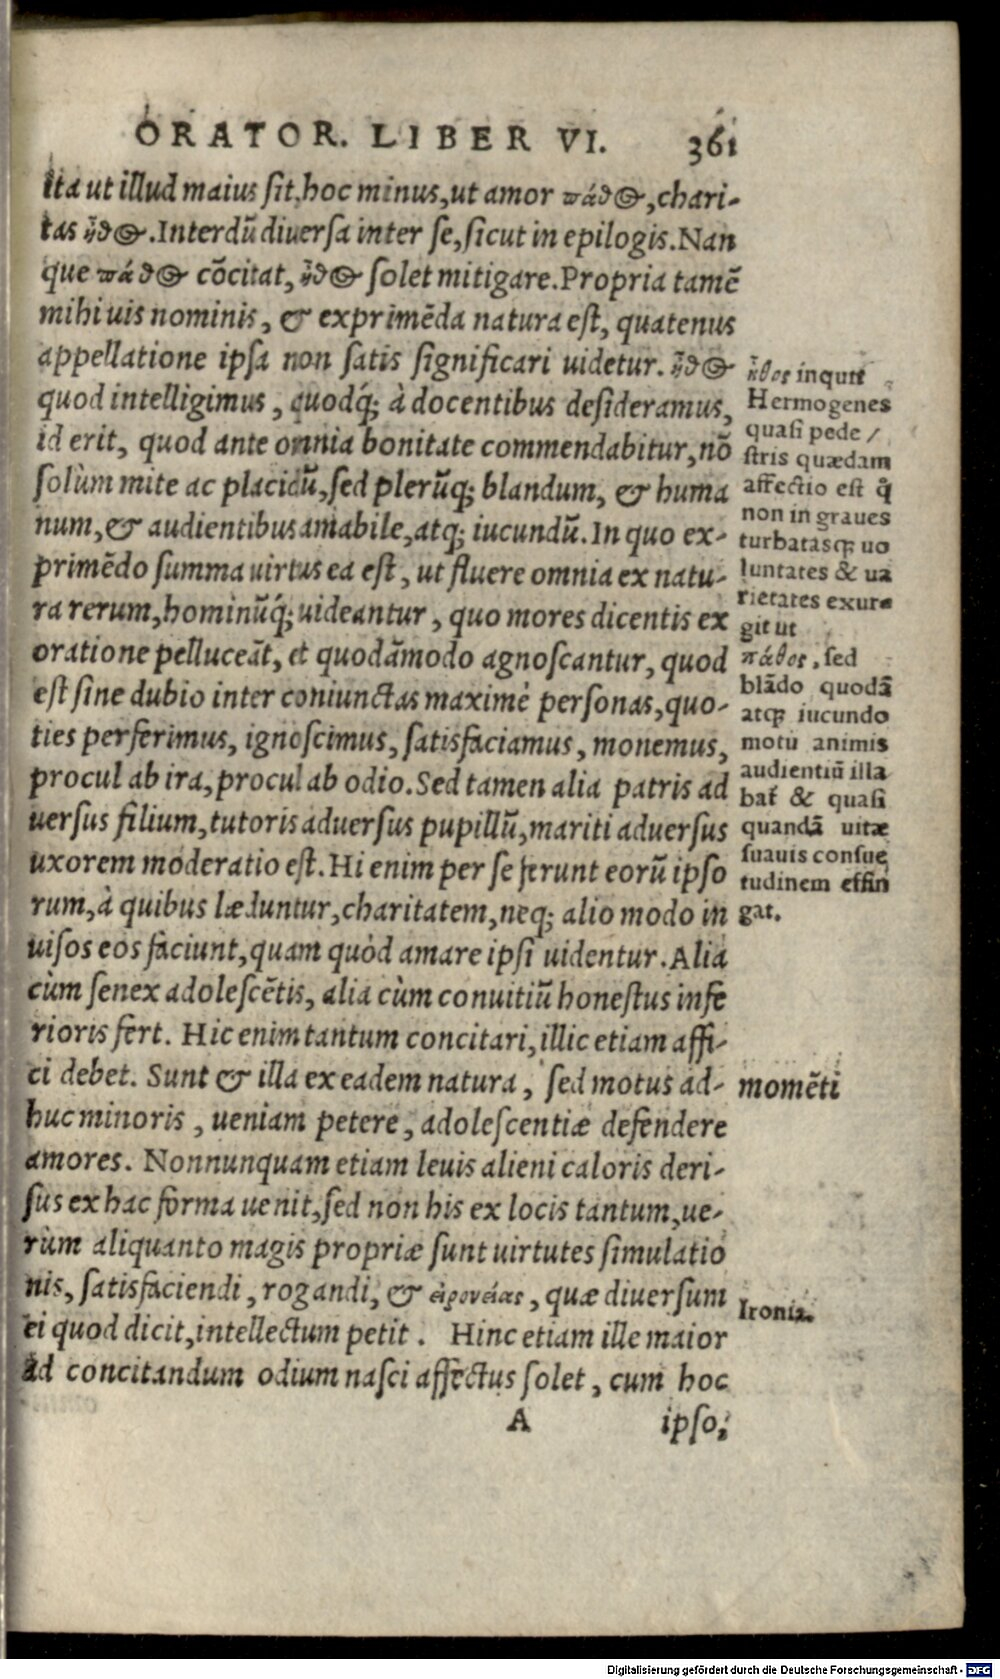 ORATOR. LIBER VI. 361
ita ut illud maius sit, hoc minus, ut amor πάθος, chari-
tas ἦθος. Interdū diuersa inter se, sicut in epilogis. Nan
que πάθος cōcitat, ἦθος solet mitigare. Propria tamē
mihi uis nominis, & exprimēda natura est, quatenus
appellatione ipsa non satis significari uidetur. ἦθος
quod intelligimus, quodq́; à docentibus desideramus,
id erit, quod ante omnia bonitate commendabitur, nō
solùm mite ac placidū, sed plerūq; blandum, & huma
num, & audientibus amabile, atq; iucundū. In quo ex-
primēdo summa uirtus ea est, ut fluere omnia ex natu-
ra rerum, hominūq́; uideantur, quo mores dicentis ex
oratione pelluceāt, et quodāmodo agnoscantur, quod
est sine dubio inter coniunctas maximè personas, quo-
ties perferimus, ignoscimus, satisfaciamus, monemus,
procul ab ira, procul ab odio. Sed tamen alia patris ad
uersus filium, tutoris aduersus pupillū, mariti aduersus
uxorem moderatio est. Hi enim per se ferunt eorū ipso
rum, à quibus læduntur, charitatem, neq; alio modo in
uisos eos faciunt, quam quòd amare ipsi uidentur. Alia
cùm senex adolescētis, alia cùm conuitiū honestus infe
rioris fert. Hic enim tantum concitari, illic etiam affi-
ci debet. Sunt & illa ex eadem natura, sed motus ad-
huc minoris, ueniam petere, adolescentiæ defendere
amores. Nonnunquam etiam leuis alieni caloris deri-
sus ex hac forma uenit, sed non his ex locis tantum, ue-
rùm aliquanto magis propriæ sunt uirtutes simulatio
nis, satisfaciendi, rogandi, & εἰρονείας, quæ diuersum
ei quod dicit, intellectum petit. Hinc etiam ille maior
ad concitandum odium nasci affectus solet, cum hoc
A ipso,
ἦθος inquit
Hermogenes
quasi pede/
stris quædam
affectio est q̃
non in graues
turbatasq; uo
luntates & ua
rietates exur-
git ut
πάθος, sed
blādo quodā
atq; iucundo
motu animis
audientiū illa
bat̃ & quasi
quandā uitæ
suauis consue
tudinem effin
gat.
momēti
Ironia.
Digitalisierung gefördert durch die Deutsche Forschungsgemeinschaft - DFG